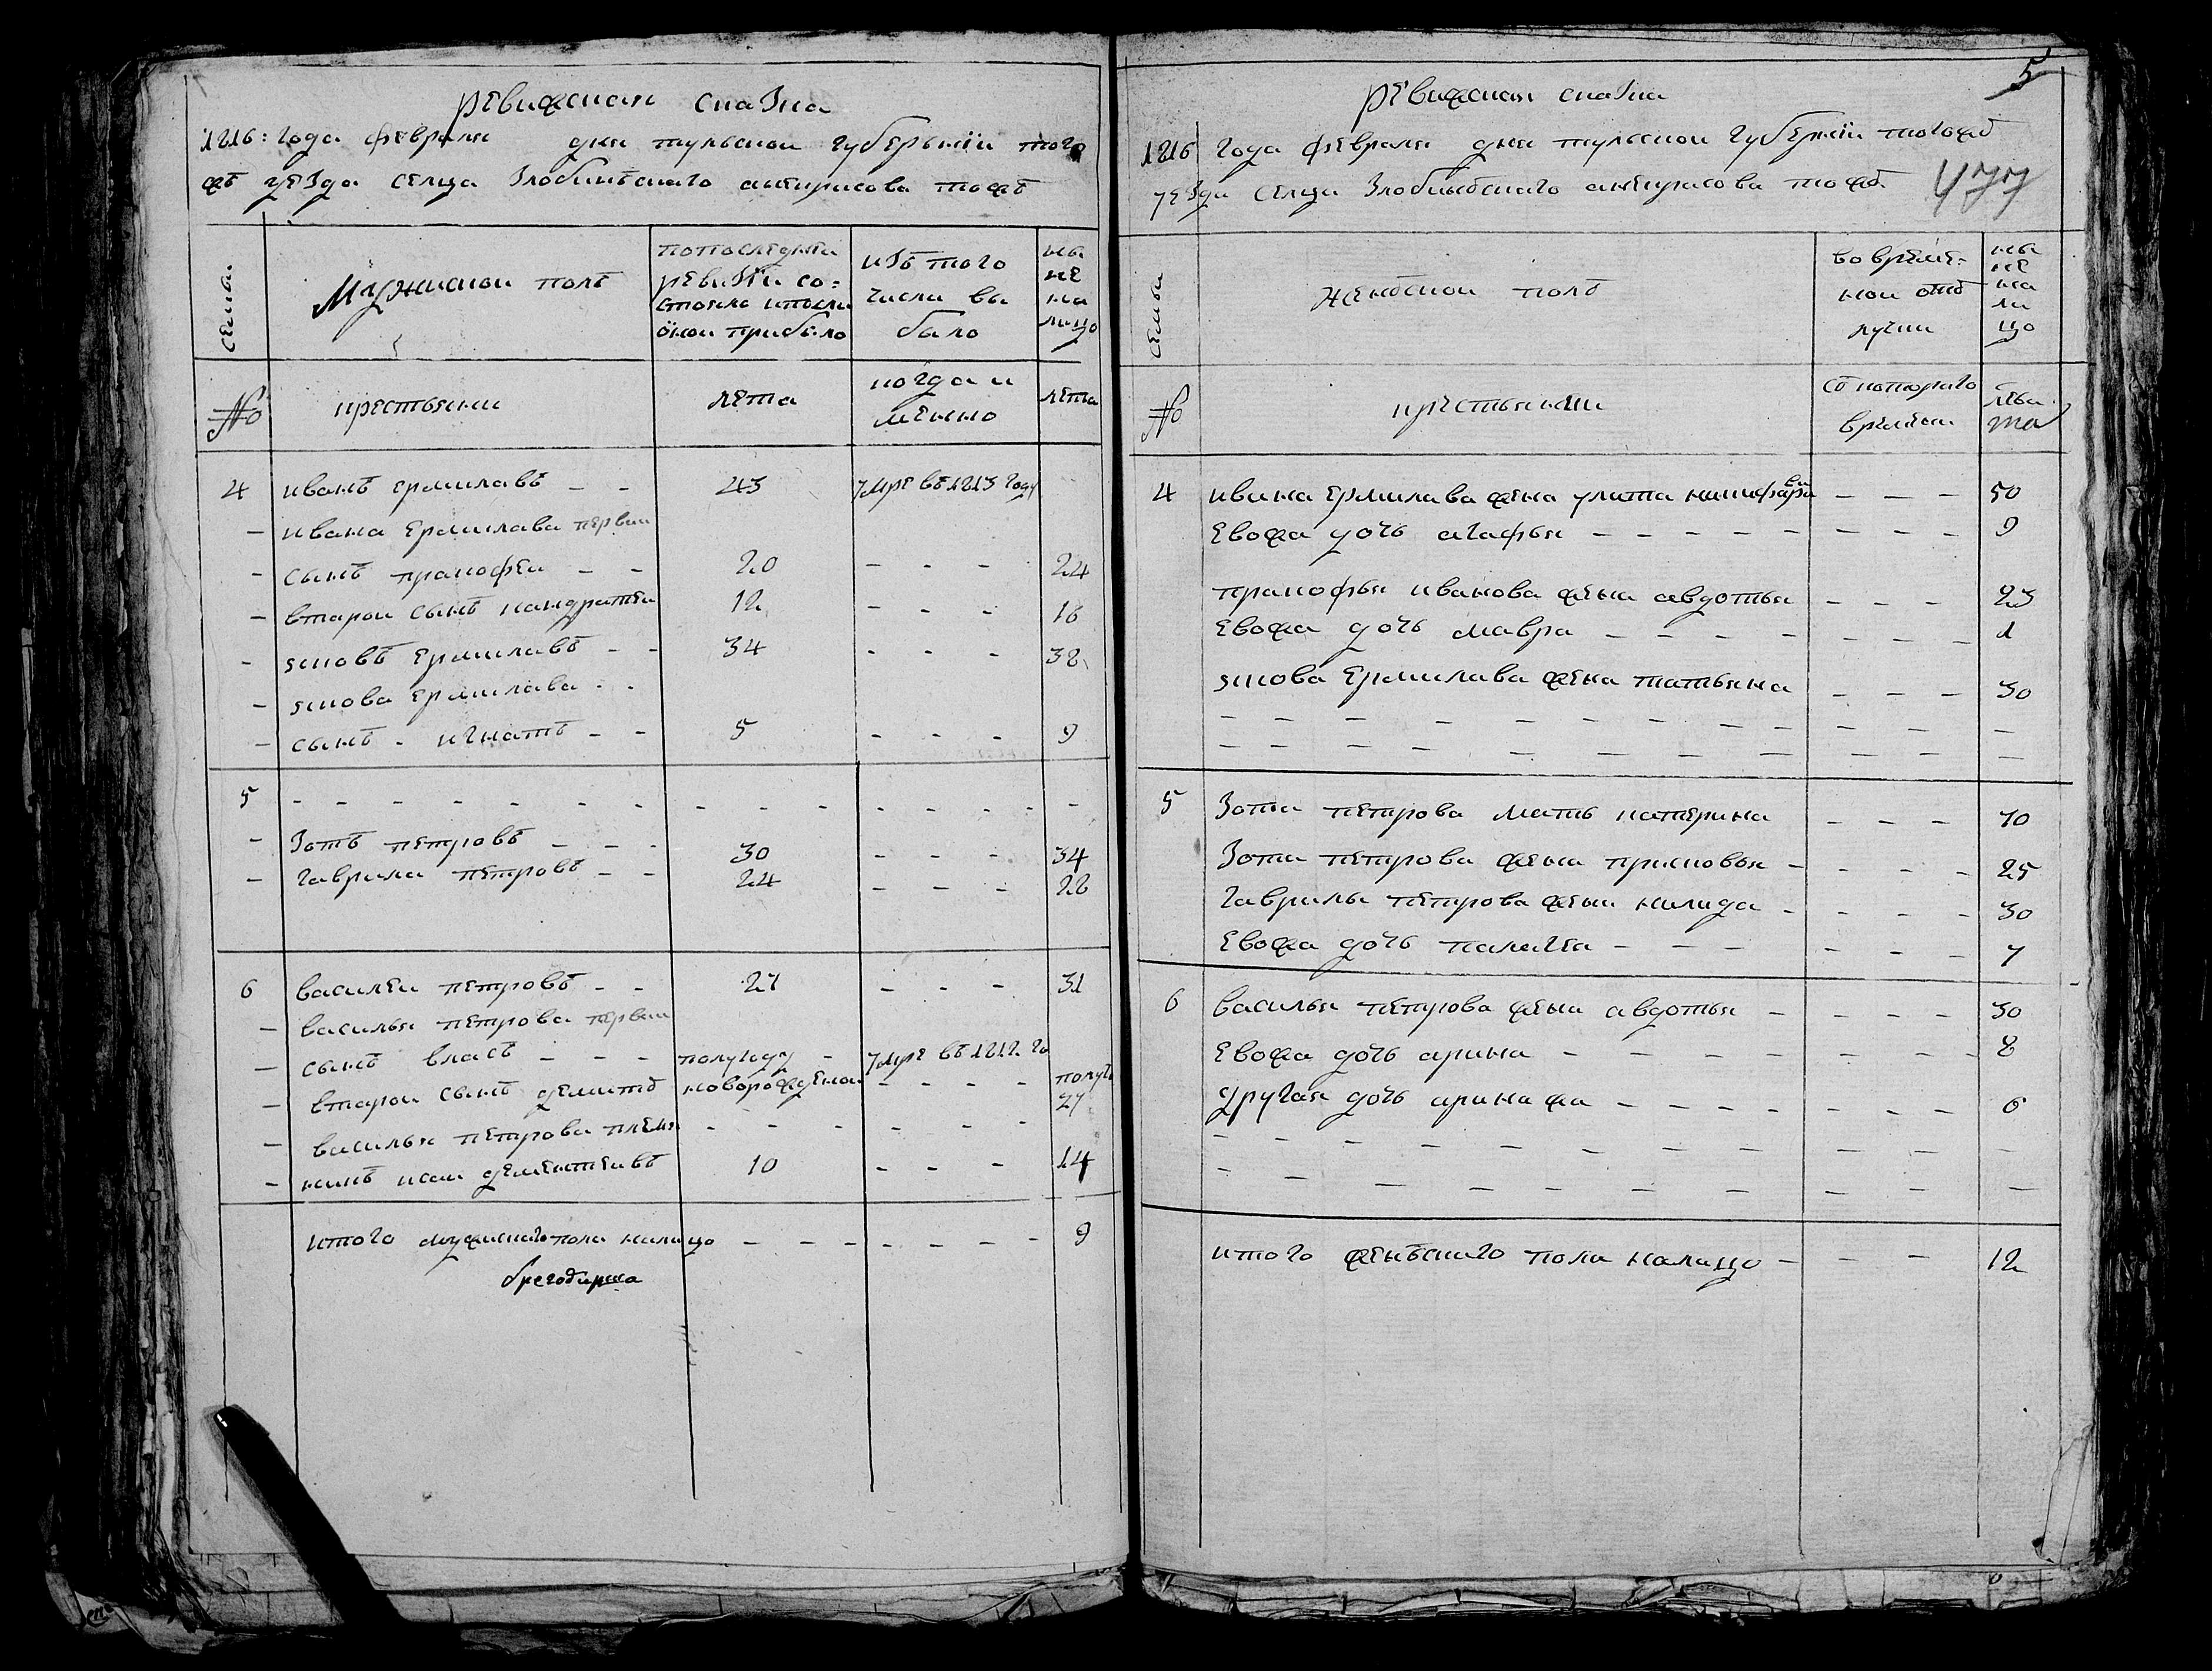 ревижская сказка
1816: года февраля дня тульской губернии того
жъ уезда сельца Злобинскаго анчурисова тожъ
семьи
Мужиской полъ
попоследней
ревизїи со=
стояло ипосли
оной прибыло
изъ того
числа вы
было
ны
не
на
лицо
№
крестьяни
лета
когда и
менно
лета
4 иванъ ермилавъ - - 43 умре въ 1813 году
- ивана Ермилава первай
- сынъ пракофеи - - 20 - - - 24
- втарои сынъ кандратеи 12 - - - 16
- яковъ ермилавъ - - 34 - - - 38
- якова ермилава - -
- сынъ - игнатъ - - 5 - - - 9
5 - - - - - - - - - - - - - - -
- Зотъ петровъ - - - 30 - - - 34
- гаврила петровъ - - 24 - - - 28
6 василеи петровъ - - 27 - - - 31
- василья петрова первай
- сынъ власъ - - - полугоду - умре въ 1812 го
- втарои сынъ демитъ новорожденои - - - - полуго
27
- василья петрова племя - - - - - -
- никъ исаи дементеивъ 10 - - - 14
итого мужискаго пола налицо - - - - - - - 9
5
ревижская сказка
1816 года февраля дня тульской губернїи тогожъ
уезда сельца Злобинъскаго анчурисова тожъ
477
семьи
женъской полъ
во времѣ=
ной отъ
лучки
ны
не
на
ли
цо
№
крестьянки
съ котораго
времени
лѣ
та
4 ивана Ермилава жена улита никифарава - - - 50
Евожа дочь агафья - - - - - - - - 9
пракофья иванова жена авдотья - - - 23
Евожа дочь мавра - - - - - - - 1
якова Ермилава жена татьяна - - - 30
- - - - - - - - - - - - -
- - - - - - - - - - - -
5 Зота петрова мать катерина - - - 70
Зота петрова жена прасковья - - - - 25
гаврилы петрова жена нилида - - - - 30
Евожа дочь палагея - - - - - - 7
6 василья петрова жена авдотья - - - - 30
Евожа дочь арина - - - - - - - - - 8
другая дочь арина жа - - - - - - - 6
- - - - - - - - - - - -
- - - - - - - - - -
итого женъскаго пола налицо - - - 12